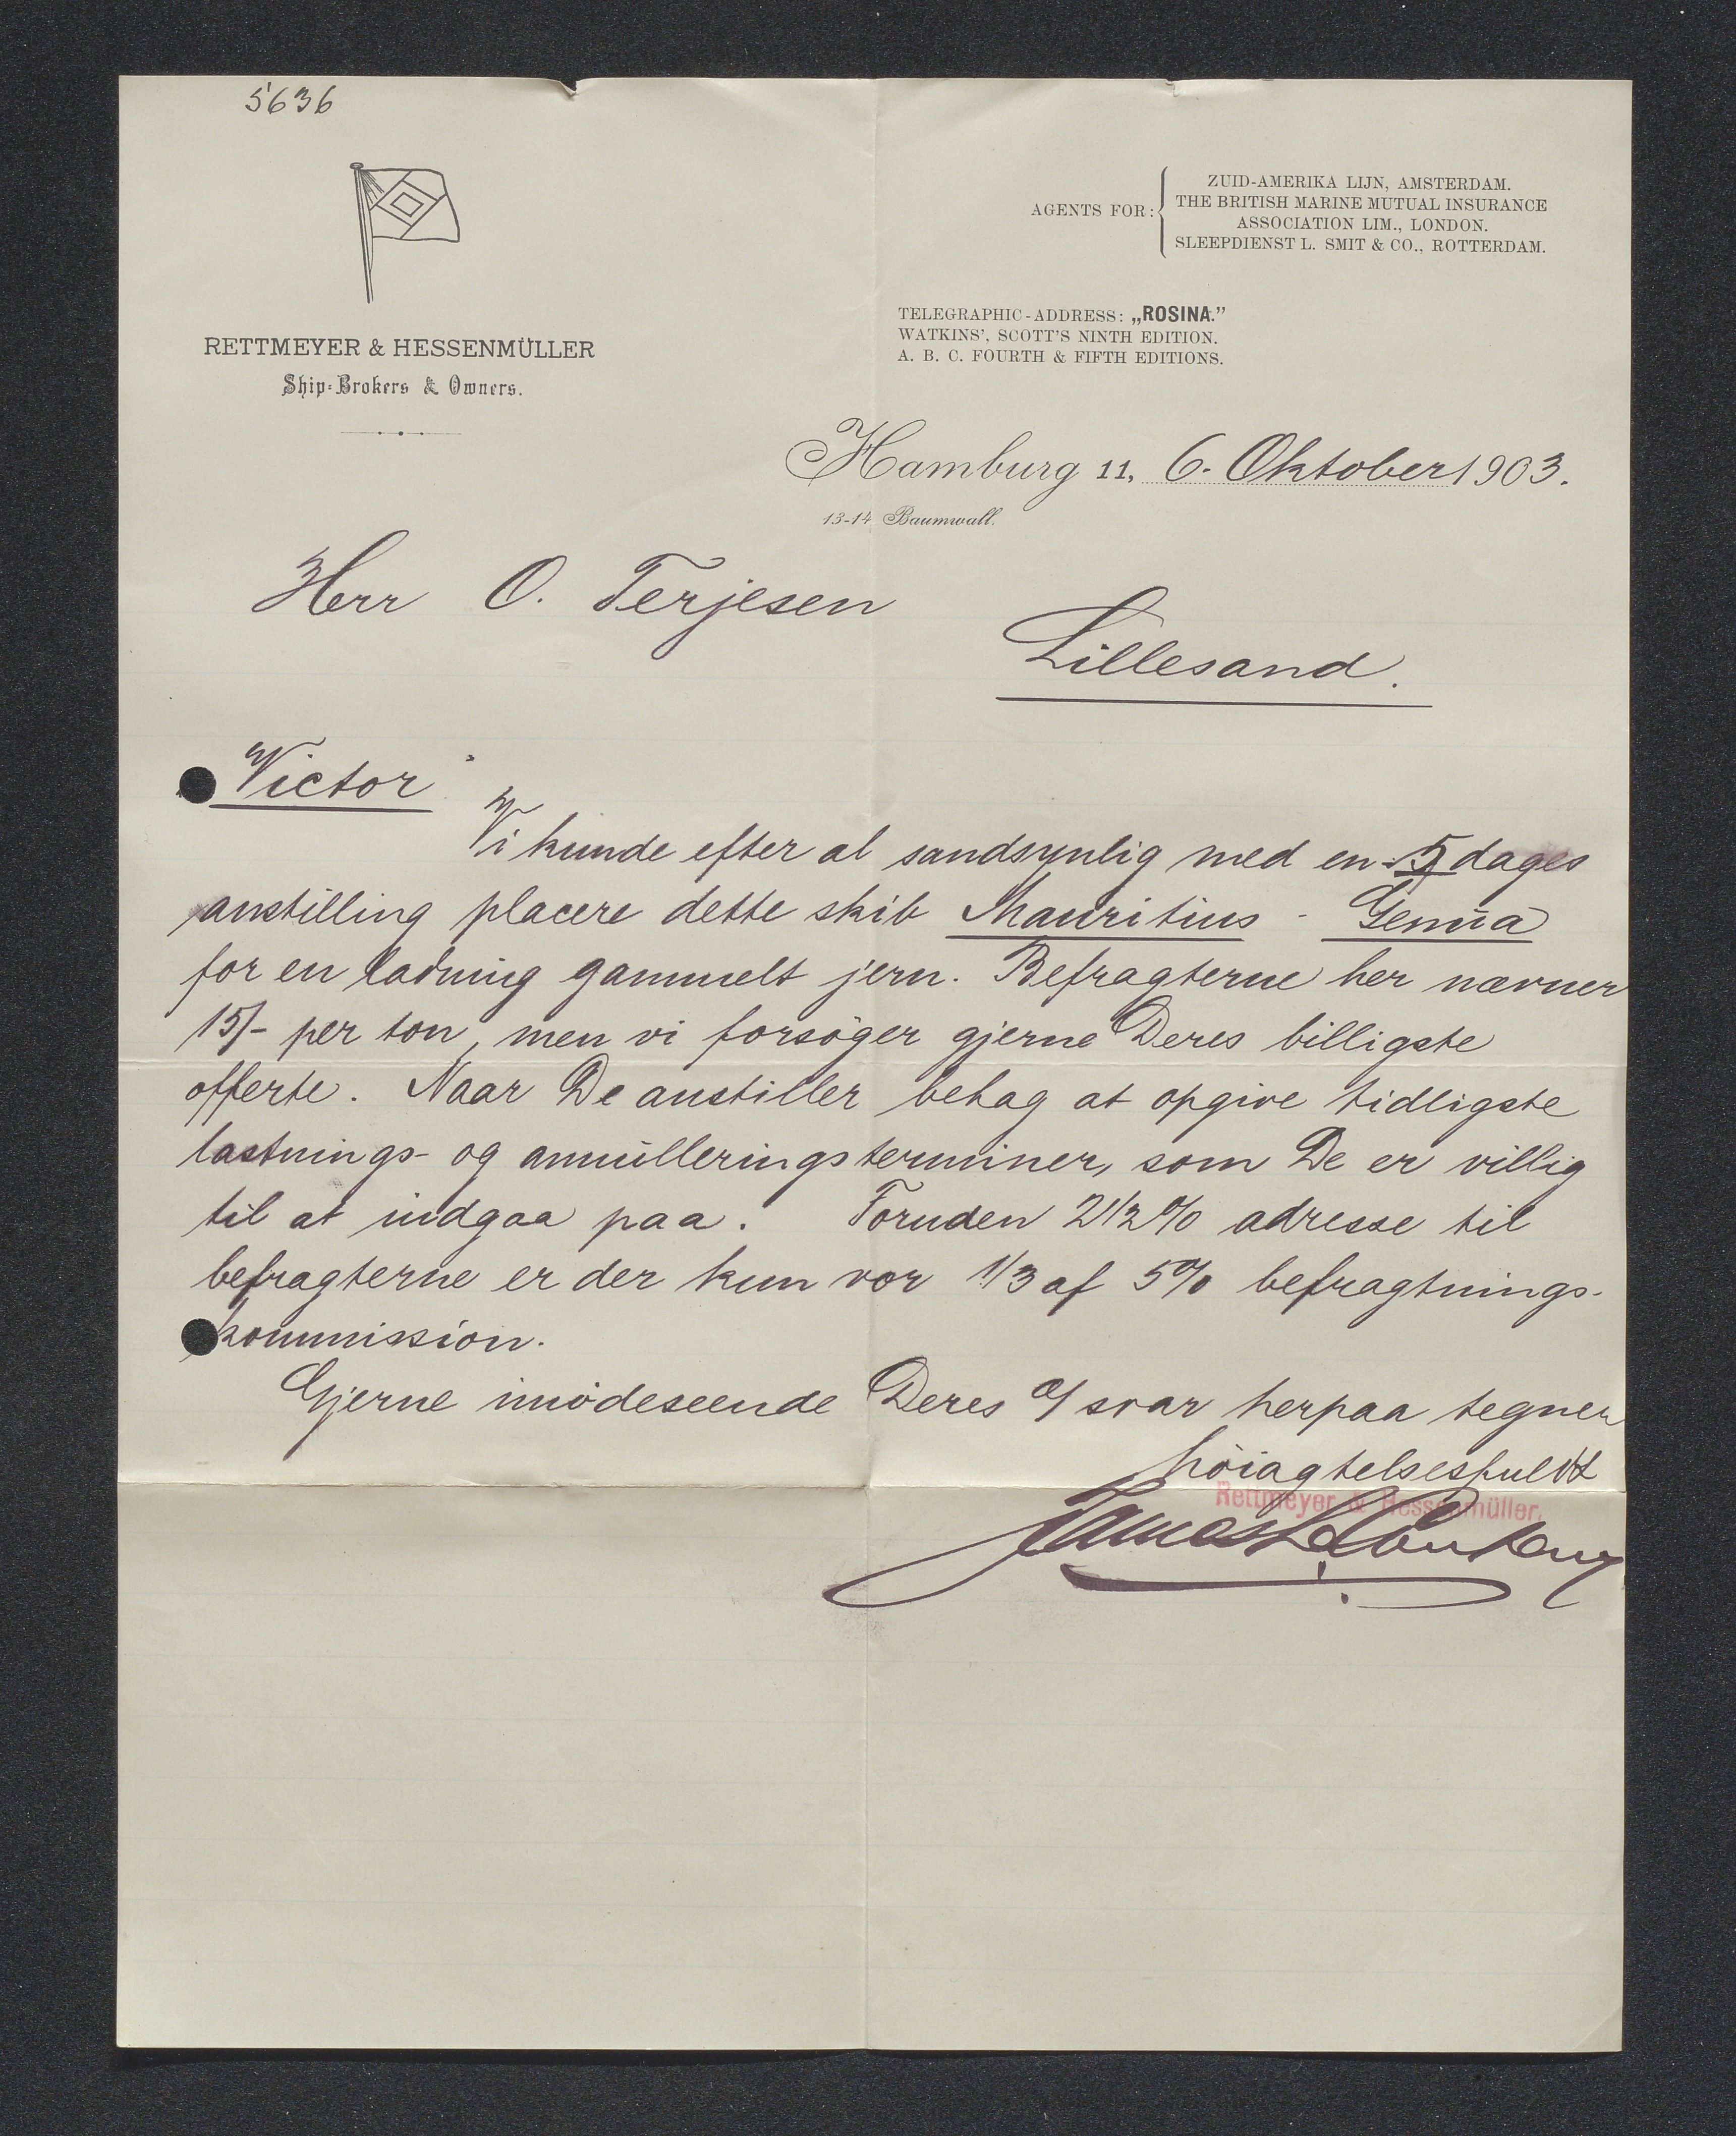 5636
AGENTS FOR:
ZUID-AMERIKA LIJN, AMSTERDAM.
THE BRITISH MARINE MUTUAL INSURANCE
ASSOCIATION LIM., LONDON.
SLEEPDIENST L. SMIT & CO., ROTTERDAM.
TELEGRAPHIC-ADDRESS: „ROSINA."
WATKINS', SCOTT'S NINTH EDITION.
A. B. C. FOURTH & FIFTH EDITIONS.
RETTMEYER & HESSENMÜLLER
Ship-Brokers & Owners.
Hamburg 11, 6. Oktober 1903.
13-14 Baumwall.
Herr O. Terjesen
Lillesand.
Victor"
Vi kunde efter al sandsynlig med en 5 dages
anstilling placere dette skib Mauritius - Genua
for en ladning gammelt jern. Befragterne her nævner
15/- per ton, men vi forsöger gjerne Deres billigste
offerte. Naar De anstiller behag at opgive tidligste
lastnings- og annulleringsterminer, som De er villig
til at indgaa paa. Foruden 2 1/2 % adresse til
befragterne er der kun vor 1/3 af 5% befragtnings-
kommission.
Gjerne imödeseende Deres a/ svar herpaa tegner
höiagtelsesfuldt
Rettmeyer & Hessenmüller.